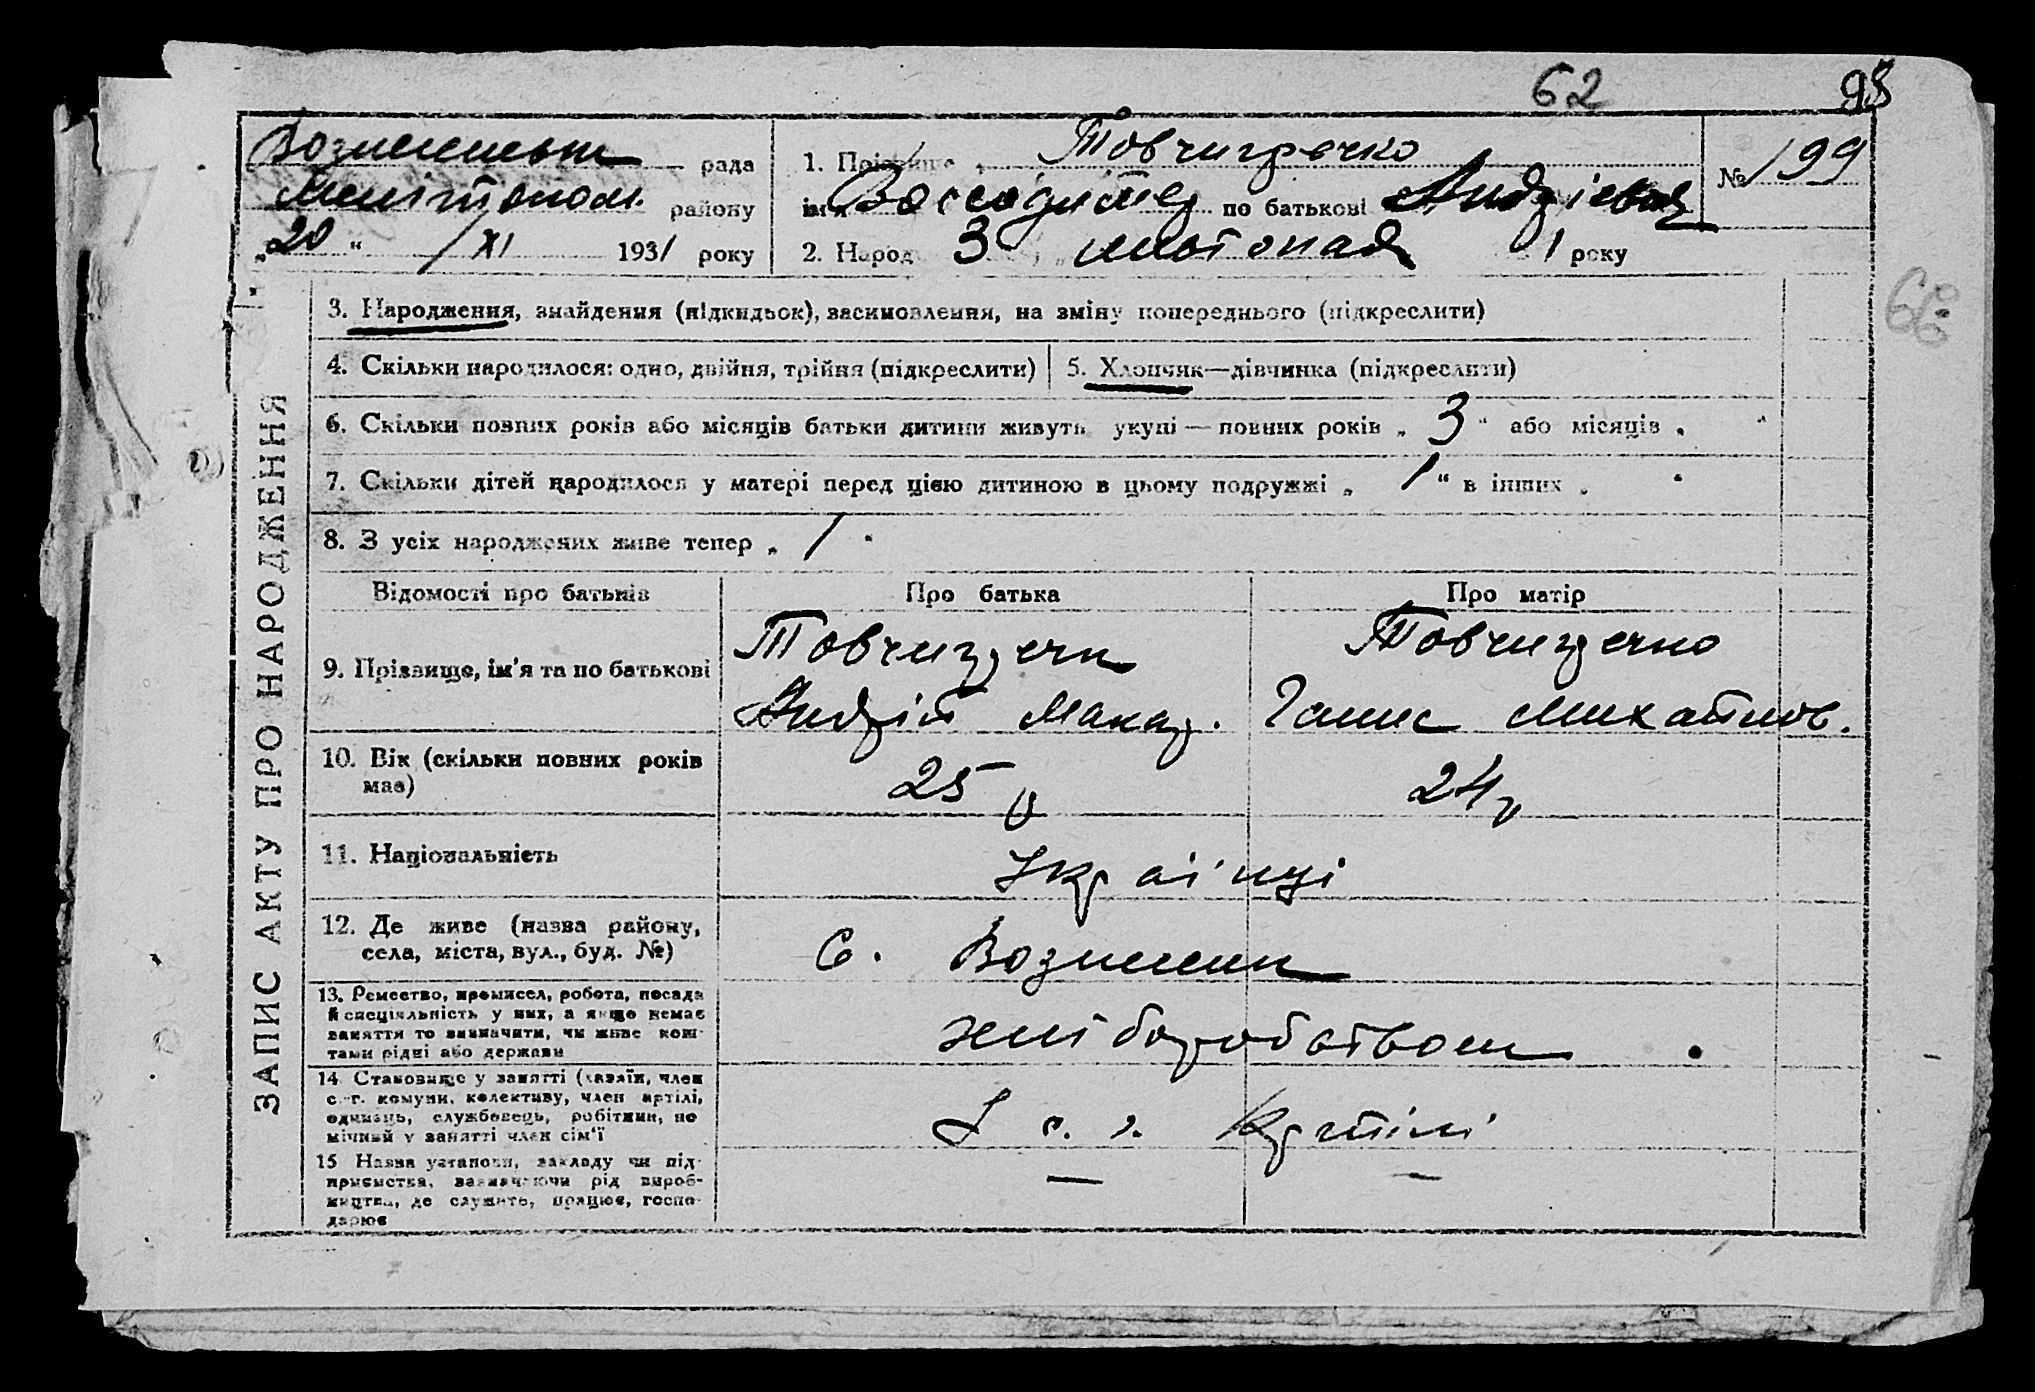 62 95
Вознесенськ рада
Мелітопол. району
„20“ /XI 1931 року
1. Прізвище Товчигречко
ім'я Володимер по батькові Андрієвич
2. Народ 3 листопад 1 року
№ 199
66
3. Народження, знайдення (підкидьок), всиновлення, на зміну попереднього (підкреслити)
4. Скільки народилося: одно, двійня, трійня (підкреслити) 5. Хлопчик—дівчинка (підкреслити)
6. Скільки повних років або місяців батьки дитини живуть укупі — повних років „3“ або місяців „
7. Скільки дітей народилося у матері перед цією дитиною в цьому подружжі „1“ в інших „
8. З усіх народжених живе тепер „1
Відомості про батьків Про батька Про матір
9. Прізвище, ім'я та по батькові
Товчигречк Товчигречко
Андрій Макар. Ганна Михайлов.
10. Вік (скільки повних років має)
25 р 24 р
11. Національність
Українці
12. Де живе (назва району, села, міста, вул., буд. №)
с. Вознесенк
13. Ремество, промисел, робота, посада
й спеціяльність у них, а якщо немає
заняття то визначити, чи живе кош-
тами рідні або держави
хліборобством
14 Становище у занятті (хазяїн, член
с.-г. комуни, колективу, член артілі,
одинань, службовець, робітник, по
мічний у занятті член сім'ї
15 Назва установи, закладу чи під-
приємства, зазначаючи рід вироб-
ництва, де служить, працює, госпо-
дарює
— —
ЗАПИС АКТУ ПРО НАРОДЖЕННЯ